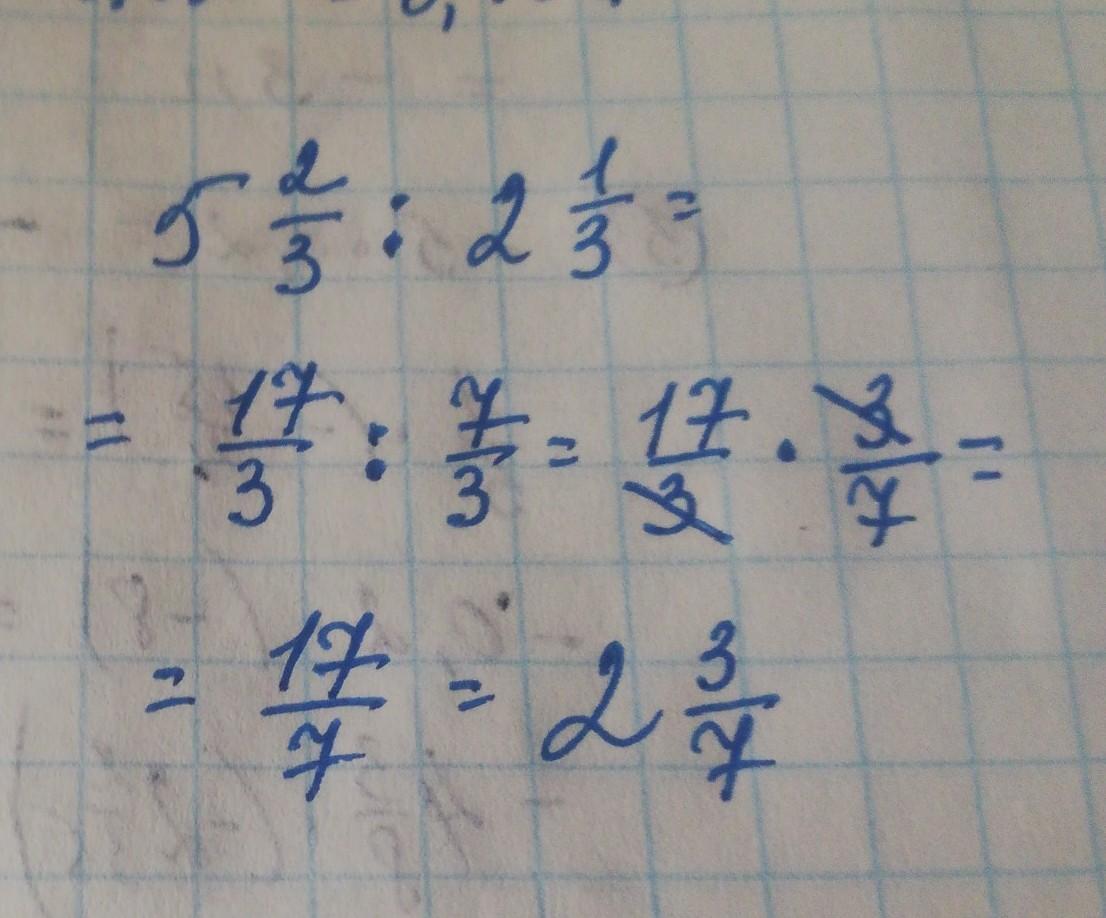 5 2/3 : 2 1/3 =
= 17/3 : 7/3 = 17/3 · 3/7 =
= 17/7 = 2 3/7